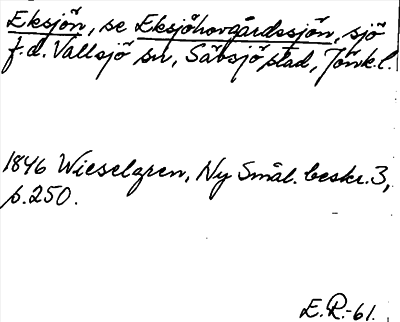 Eksjön, se Eksjöhovgårdssjön, sjö
f.d. Vallsjö sn, Sävsjö stad, Jönk.l.
1846 Wieselgren, Ny Smål. beskr. 3,
p.250.
E.R.-61.